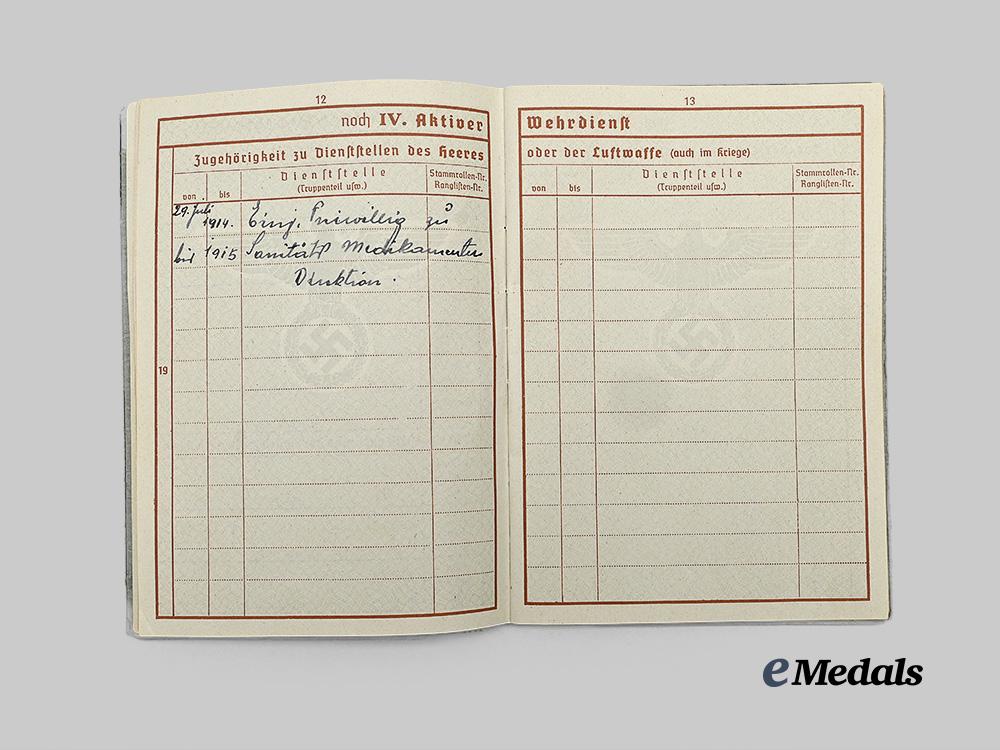 12
noch IV. Aktiver
Zugehörigkeit zu Dienststellen des Heeres
von
bis
Dienststelle
(Truppenteil usw.)
Stammrollen-Nr.
Ranglisten-Nr.
29. Juli
1914. Einj. Freiwillig zu
bis 1915 Sanitäts Medikamenten
Direktion.
19
13
Wehrdienst
oder der Luftwaffe (auch im Kriege)
von
bis
Dienststelle
(Truppenteil usw.)
Stammrollen-Nr.
Ranglisten-Nr.
eMedals